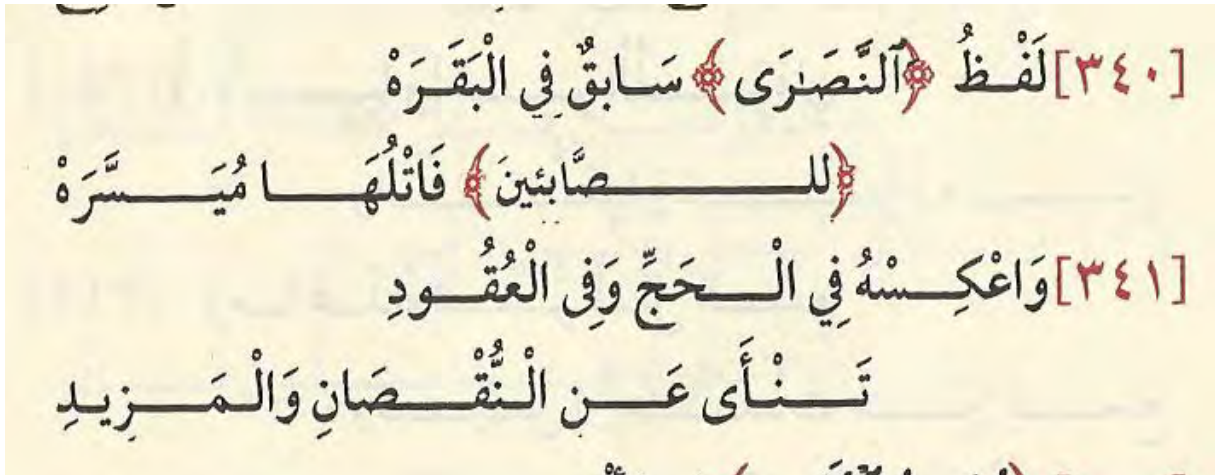 [٣٤٠] لَفْظُ ﴿ٱلنَّصَٰرَى﴾ سَابِقٌ فِي الْبَقَرَهْ
﴿للصَّابِئِينَ﴾ فَاتْلُهَا مُيَسَّرَهْ
[٣٤١] وَاعْكِسْهُ فِي الْحَجِّ وَفِى الْعُقُودِ
تَنْأَى عَنِ الْنُّقْصَانِ وَالْمَزِيدِ